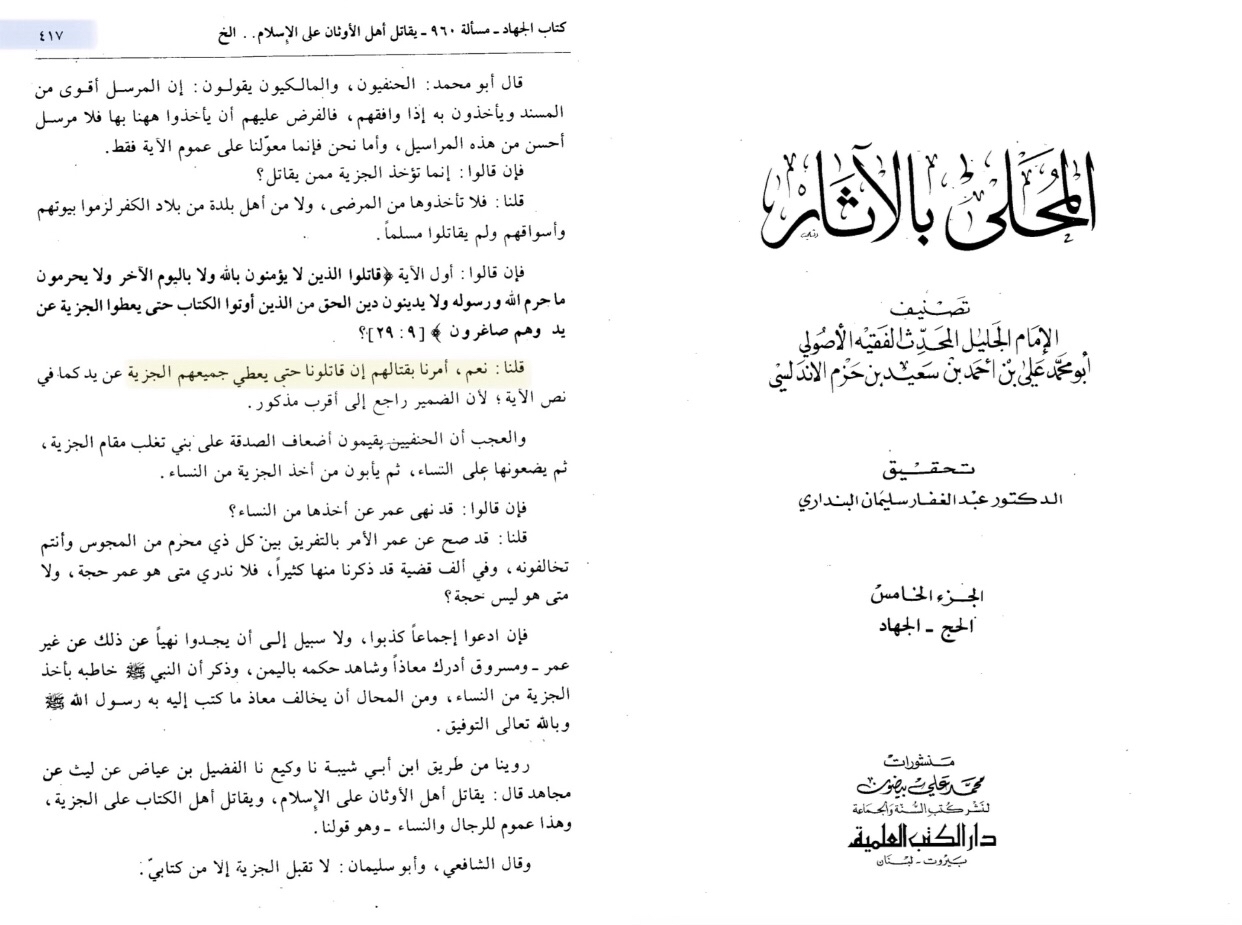 كتاب الجهاد ـ مسألة ٩٦٠ ـ يقاتل أهل الأوثان على الإسلام . . الخ
٤١٧
قال أبو محمد : الحنفيون ، والمالكيون يقولون : إن المرسل أقوى من
المسند ويأخذون به إذا وافقهم ، فالفرض عليهم أن يأخذوا ههنا بها فلا مرسل
أحسن من هذه المراسيل ، وأما نحن فإنما معوّلنا على عموم الآية فقط .
فإن قالوا : إنما تؤخذ الجزية ممن يقاتل ؟
قلنا : فلا تأخذوها من المرضى ، ولا من أهل بلدة من بلاد الكفر لزموا بيوتهم
وأسواقهم ولم يقاتلوا مسلماً .
فإن قالوا : أول الآية ﴿قاتلوا الذين لا يؤمنون بالله ولا باليوم الآخر ولا يحرمون
ما حرم الله ورسوله ولا يدينون دين الحق من الذين أوتوا الكتاب حتى يعطوا الجزية عن
يد وهم صاغرون ﴾ [ ٩ : ٢٩ ] ؟
قلنا : نعم ، أمرنا بقتالهم إن قاتلونا حتى يعطي جميعهم الجزية عن يد كما في
نص الآية ؛ لأن الضمير راجع إلى أقرب مذكور .
والعجب أن الحنفيين يقيمون أضعاف الصدقة على بني تغلب مقام الجزية ،
ثم يضعونها على النساء ، ثم يأبون من أخذ الجزية من النساء .
فإن قالوا : قد نهى عمر عن أخذها من النساء ؟
قلنا : قد صح عن عمر الأمر بالتفريق بين كل ذي محرم من المجوس وأنتم
تخالفونه ، وفي ألف قضية قد ذكرنا منها كثيراً ، فلا ندري متى هو عمر حجة ، ولا
متى هو ليس حجة ؟
فإن ادعوا إجماعاً كذبوا ، ولا سبيل إلى أن يجدوا نهياً عن ذلك عن غير
عمر ـ ومسروق أدرك معاذاً وشاهد حكمه باليمن ، وذكر أن النبي ﷺ خاطبه بأخذ
الجزية من النساء ، ومن المحال أن يخالف معاذ ما كتب إليه به رسول الله ﷺ
وبالله تعالى التوفيق .
روينا من طريق ابن أبي شيبة نا وكيع نا الفضيل بن عياض عن ليث عن
مجاهد قال : يقاتل أهل الأوثان على الإسلام ، ويقاتل أهل الكتاب على الجزية ،
وهذا عموم للرجال والنساء ـ وهو قولنا .
وقال الشافعي ، وأبو سليمان : لا تقبل الجزية إلا من كتابيّ .
المُحَلَّى بالآثَار
تصنيف
الإمام الجليل المحدّث الفقيه الأصولي
أبو محمد علي بن أحمد بن سعيد بن حزم الأندلسي
تحقيق
الدكتور عبد الغفار سليمان البنداري
الجزء الخامس
الحج ـ الجهاد
منشورات
محمد علي بيضون
لنشر كتب السنة والجماعة
دار الكتب العلمية
بيروت ـ لبنان